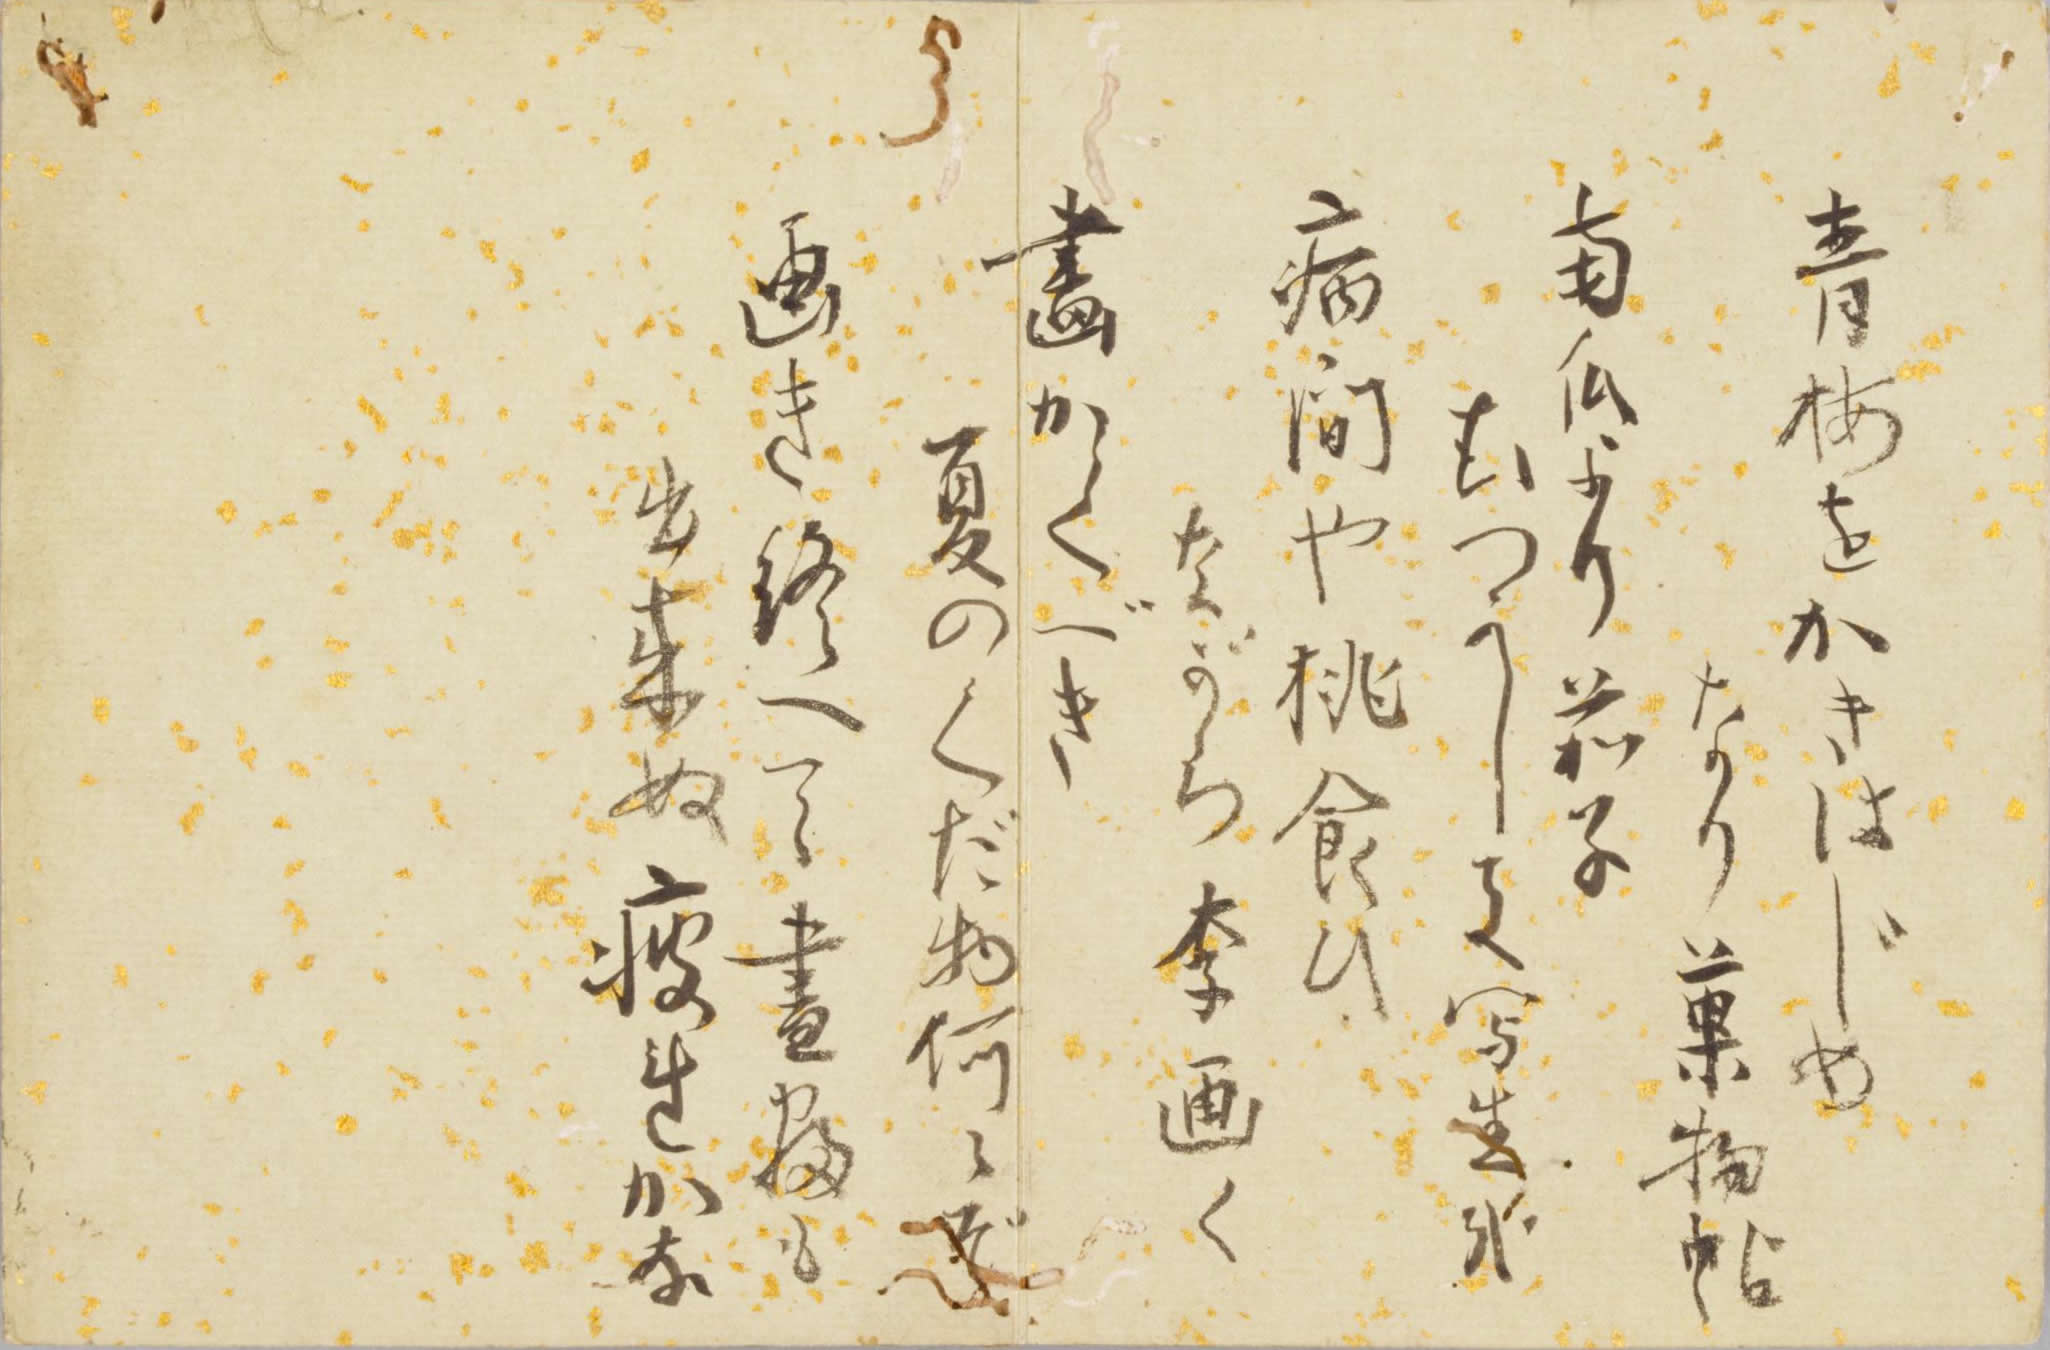 青梅をかきはじめ
なり菓物帖
南瓜より茄子
むつかしき写生哉
病間や桃食ひ
ながら李画く
畫かくべき
夏のくだ物何々ぞ
画き終へて晝寝も
出来ぬ疲れかな